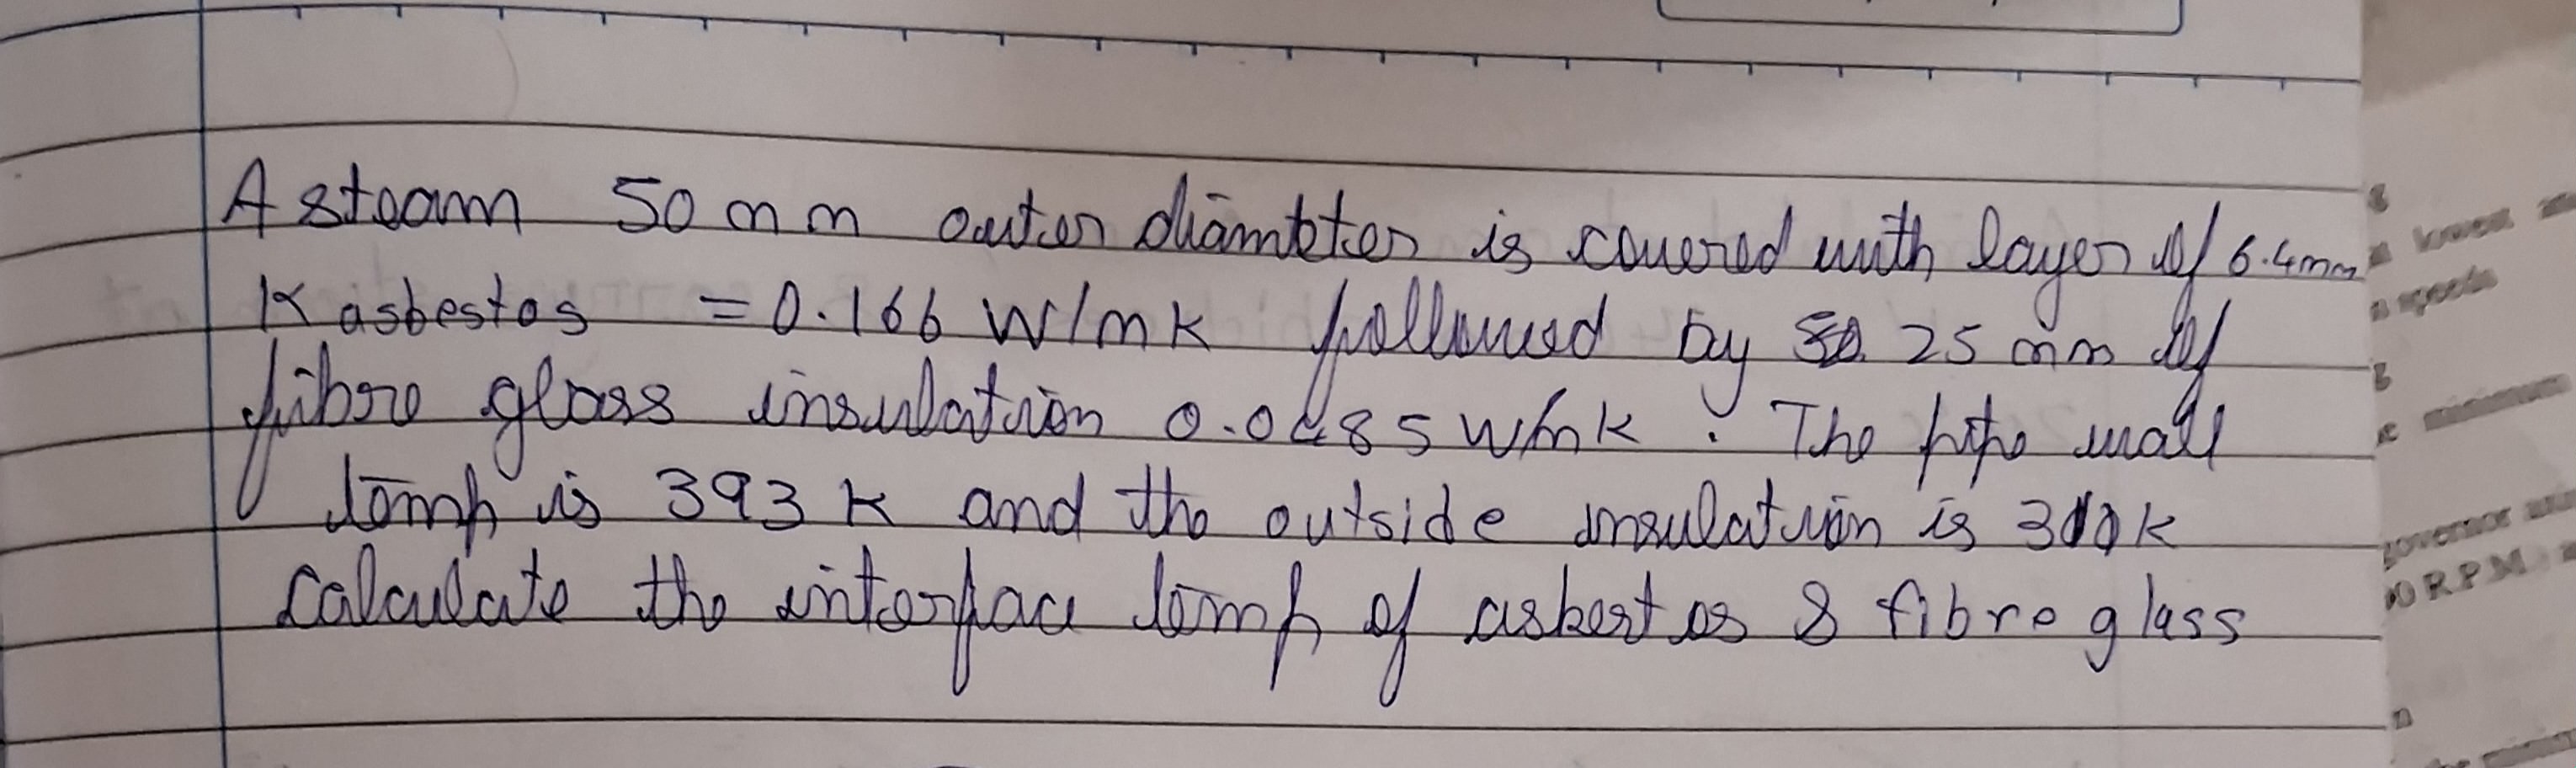 A steam 50 mm outer diameter is covered with layer of 6.4mm
K asbestos = 0.166 W/mK followed by 25 mm of
fibre glass insulation 0.0485 W/mK. The pipe wall
temp is 393 K and the outside insulation is K
Calculate the interface temp of asbestos & fibre glass
g
lowest
speeds
g
minimum
governor
R.P.M
n